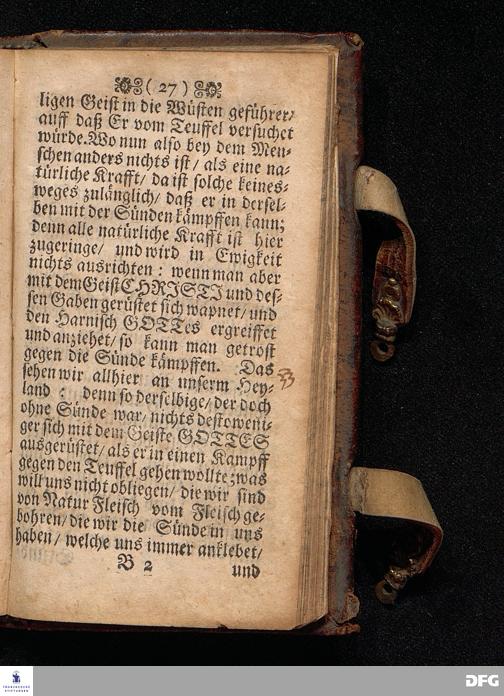 ( 27 )
ligen Geist in die Wüsten geführer/
auff daß Er vom Teuffel versuchet
würde. Wo nun also bey dem Men-
schen anders nichts ist / als eine na-
türliche Krafft / da ist solche keines-
weges zulänglich / daß er in dersel-
ben mit der Sünden kämpffen kann;
denn alle natürliche Krafft ist hier
zugeringe / und wird in Ewigkeit
nichts ausrichten : wenn man aber
mit dem Geist CHRISTI und des-
sen Gaben gerüstet sich wapnet / und
den Harnisch GOTTes ergreiffet
und anziehet / so kann man getrost
gegen die Sünde kämpffen. Das
sehen wir allhier an unserm Hey-
land : denn so derselbige / der doch
ohne Sünde war / nichts destoweni-
ger sich mit dem Geiste GOTTES
ausgerüstet / als er in einen Kampff
gegen den Teuffel gehen wollte; was
will uns nicht obliegen / die wir sind
von Natur Fleisch vom Fleisch ge-
bohren / die wir die Sünde in uns
haben / welche uns immer anklebet /
B 2 und
FRANCKESCHE
STIFTUNGEN
DFG